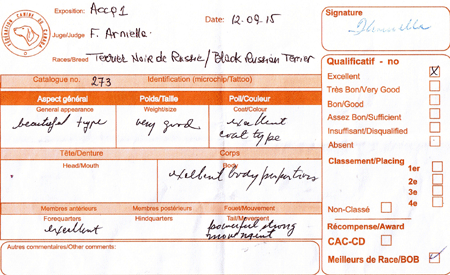 Exposition: Accp1
Date: 12.09.15
Juge/Judge
Races/Breed Terrier Noir de Russie/Black Russian Terrier
Signature
Catalogue no. 273 Identification (microchip/Tattoo)
Aspect général Poids/Taille Poil/Couleur
General appearance Weight/size Coat/Colour
beautiful type very good excellent
coat type
Tête/Denture Corps
Head/Mouth Body
exellent body proportions
Membres antérieurs Membres postérieurs Fouet/Mouvement
Forequarters Hindquarters Tail/Movement
exellent powerful strong
movement
Autres commentaires/Other comments:
Qualificatif - no
Excellent X
Très Bon/Very Good
Bon/Good
Assez Bon/Sufficient
Insuffisant/Disqualified
Absent
Classement/Placing
1er
2e
3e
4e
Non-Classé
Récompense/Award
CAC-CD
Meilleurs de Race/BOB